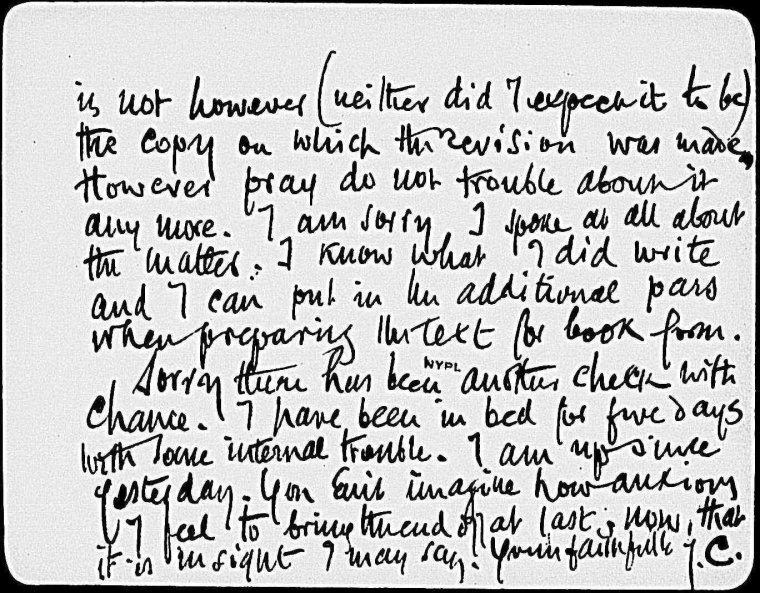 is not however (neither did I expect it to be)
the copy on which the revision was made.
However pray do not trouble about it
any more. I am sorry I spoke at all about
the matter. I know what I did write
and I can put in the additional pars
when preparing the text for book form.
Sorry there has been another check with
NYPL
Chance. I have been in bed for five days
with some internal trouble. I am up since
yesterday. You can't imagine how anxious
I feel to bring the end of at last; now, that
it is in sight I may say. Yours faithfully J.C.